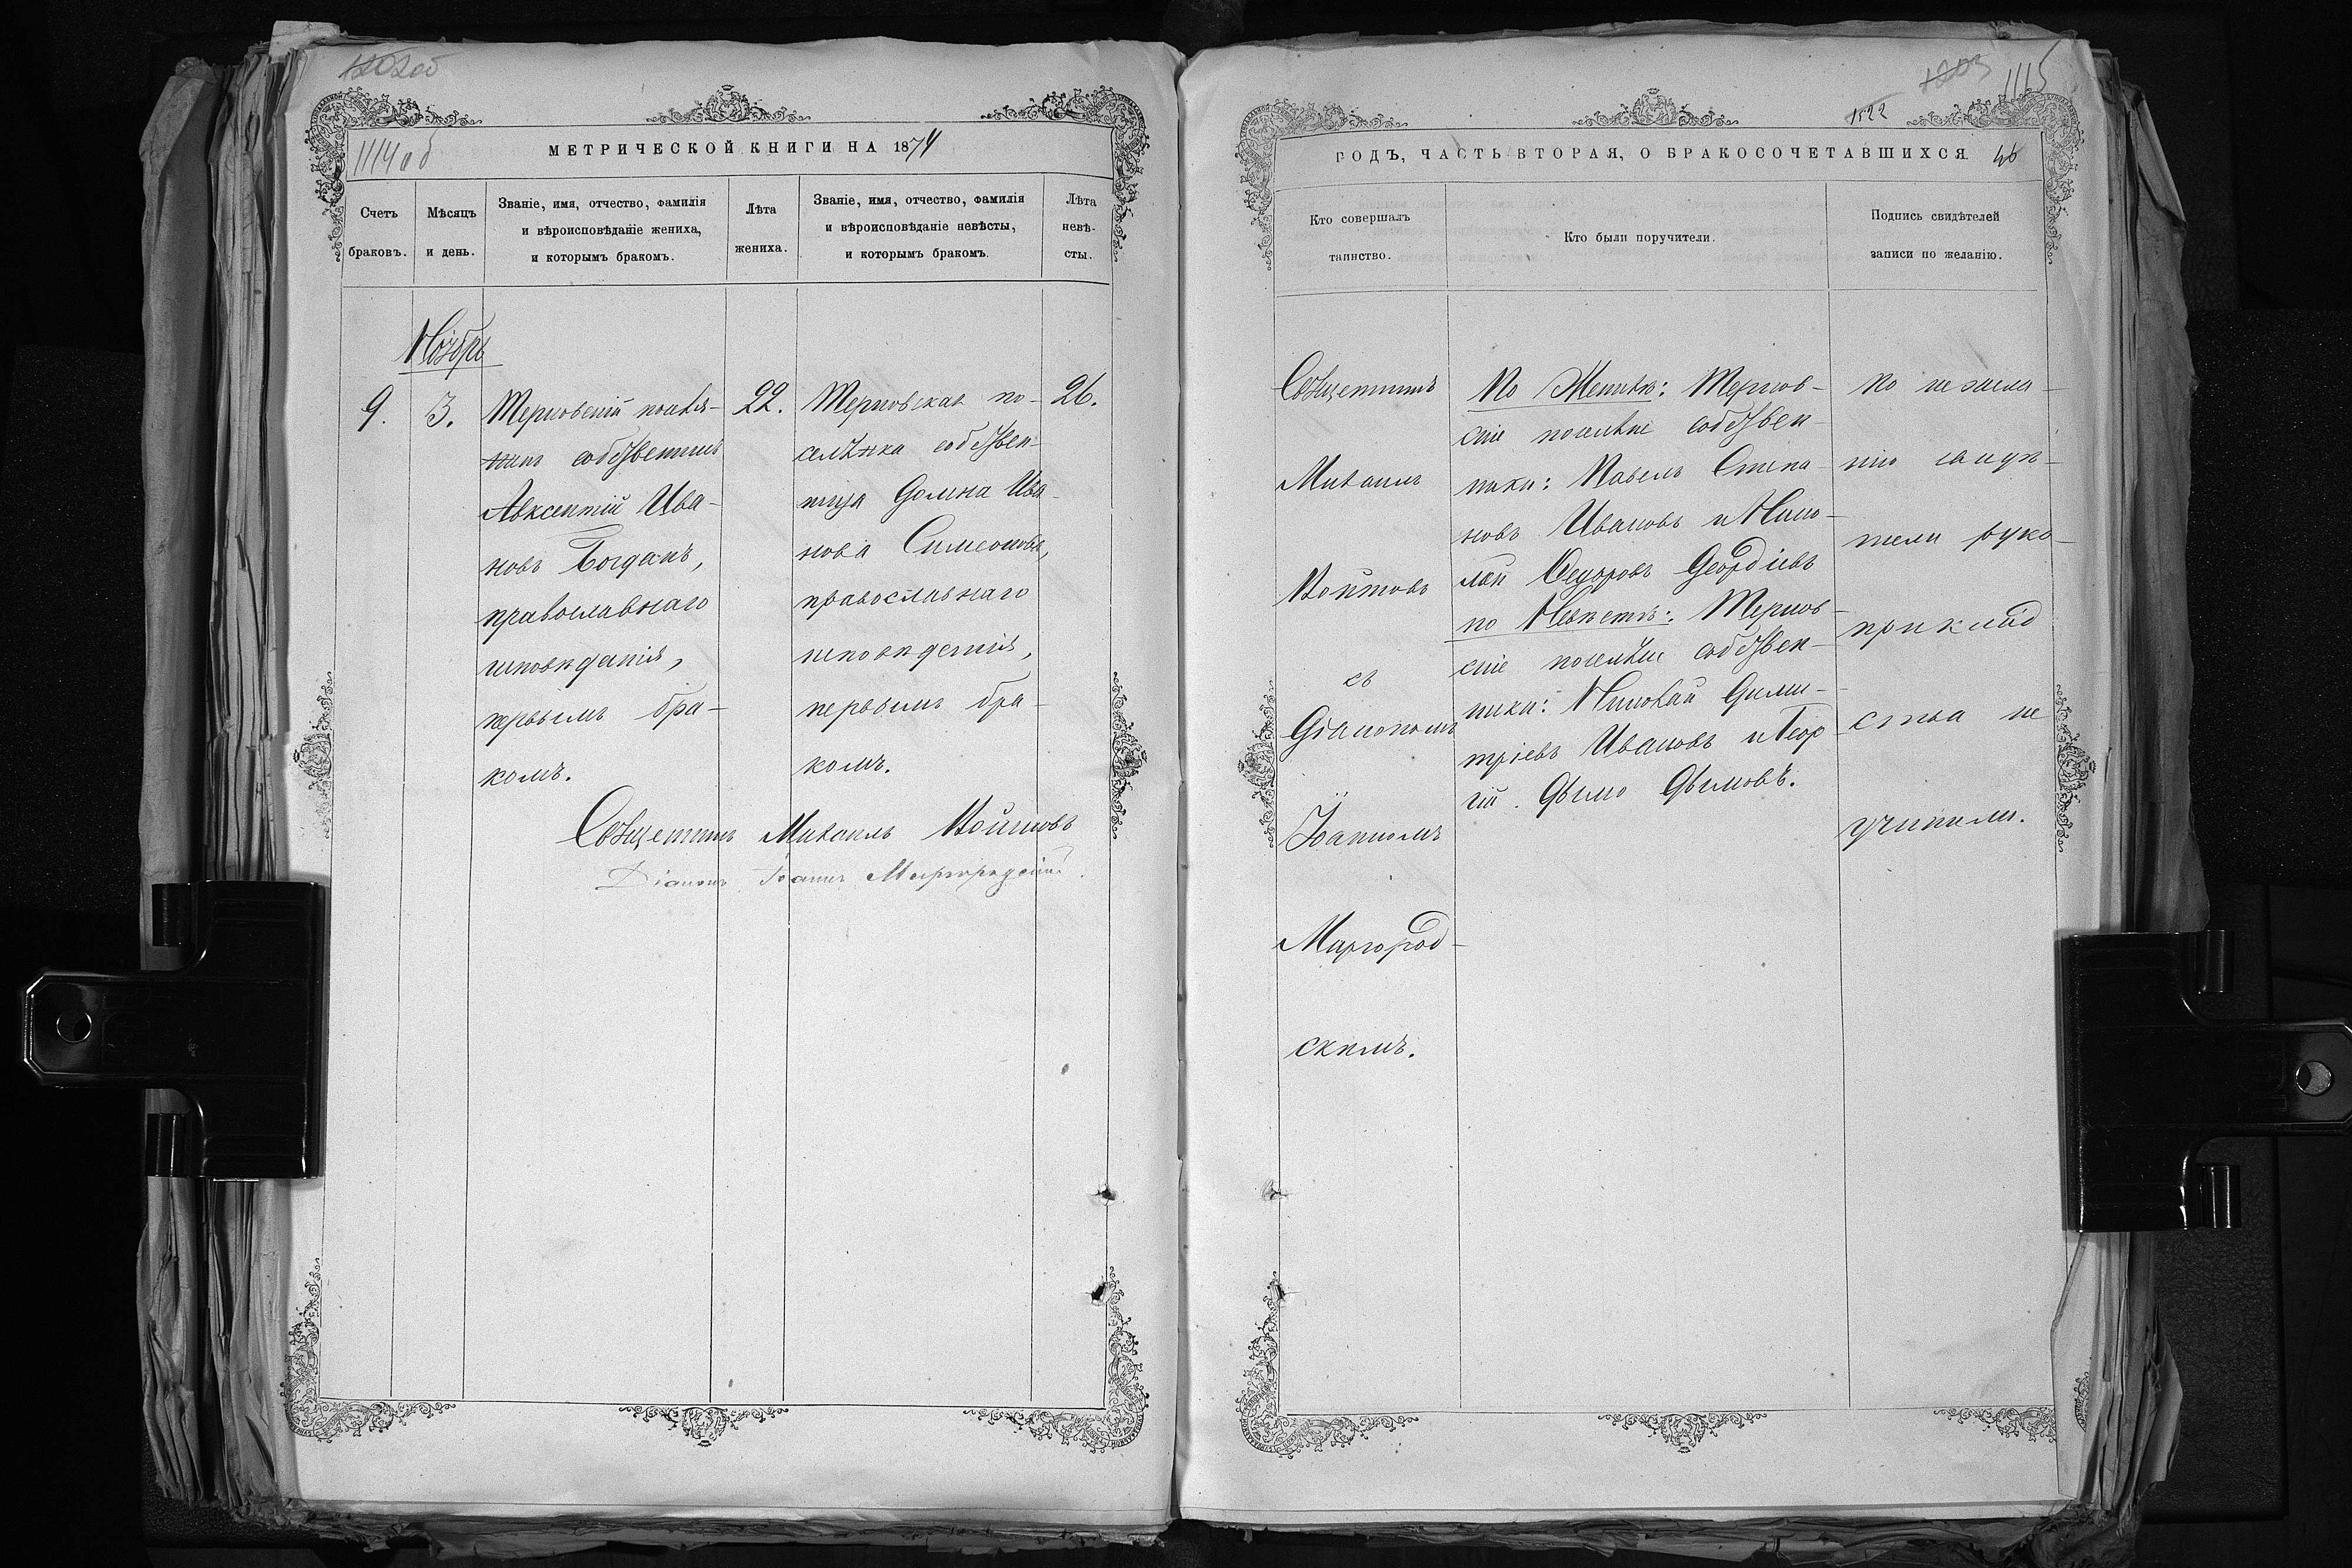 1202об
1114 об
МЕТРИЧЕСКОЙ КНИГИ НА 1874
Счетъ браковъ.
Мѣсяцъ и день.
Званіе, имя, отчество, фамилія
и вѣроисповѣданіе жениха,
и которымъ бракомъ.
Лѣта жениха.
Званіе, имя, отчество, фамилія
и вѣроисповѣданіе невѣсты,
и которымъ бракомъ.
Лѣта невѣ-
сты.
Ноябрь
9.
3.
Терновскій поселя-
нинъ собственникъ
Авксентій Ива-
новъ Богданъ,
православнаго
исповѣданія,
первымъ бра-
комъ.
22.
Терновская по-
селянка собствен-
ница Домна Ива-
нова Симеонова,
православнаго
исповѣданія,
первымъ бра-
комъ.
26.
Священникъ Михаилъ Войтовъ
Діаконъ Іоаннъ Миргородскій.
1203
1115
1522
46
ГОДЪ, ЧАСТЬ ВТОРАЯ, О БРАКОСОЧЕТАВШИХСЯ.
Кто совершалъ
таинство.
Кто были поручители.
Подпись свидѣтелей
записи по желанію.
Священникъ
Михаилъ
Войтовъ
съ
Діакономъ
Іоанномъ
Миргород-
скимъ.
По Женихѣ: Тернов-
скіе поселяне собствен-
ники: Павелъ Степа-
новъ Ивановъ и Нико-
лай Ѳедоровъ Георгіевъ
по Невѣстѣ: Тернов-
скіе поселяне собствен-
ники: Николай Дими-
тріевъ Ивановъ и Геор-
гій Дымо Дымовъ.
По неже
учинили.